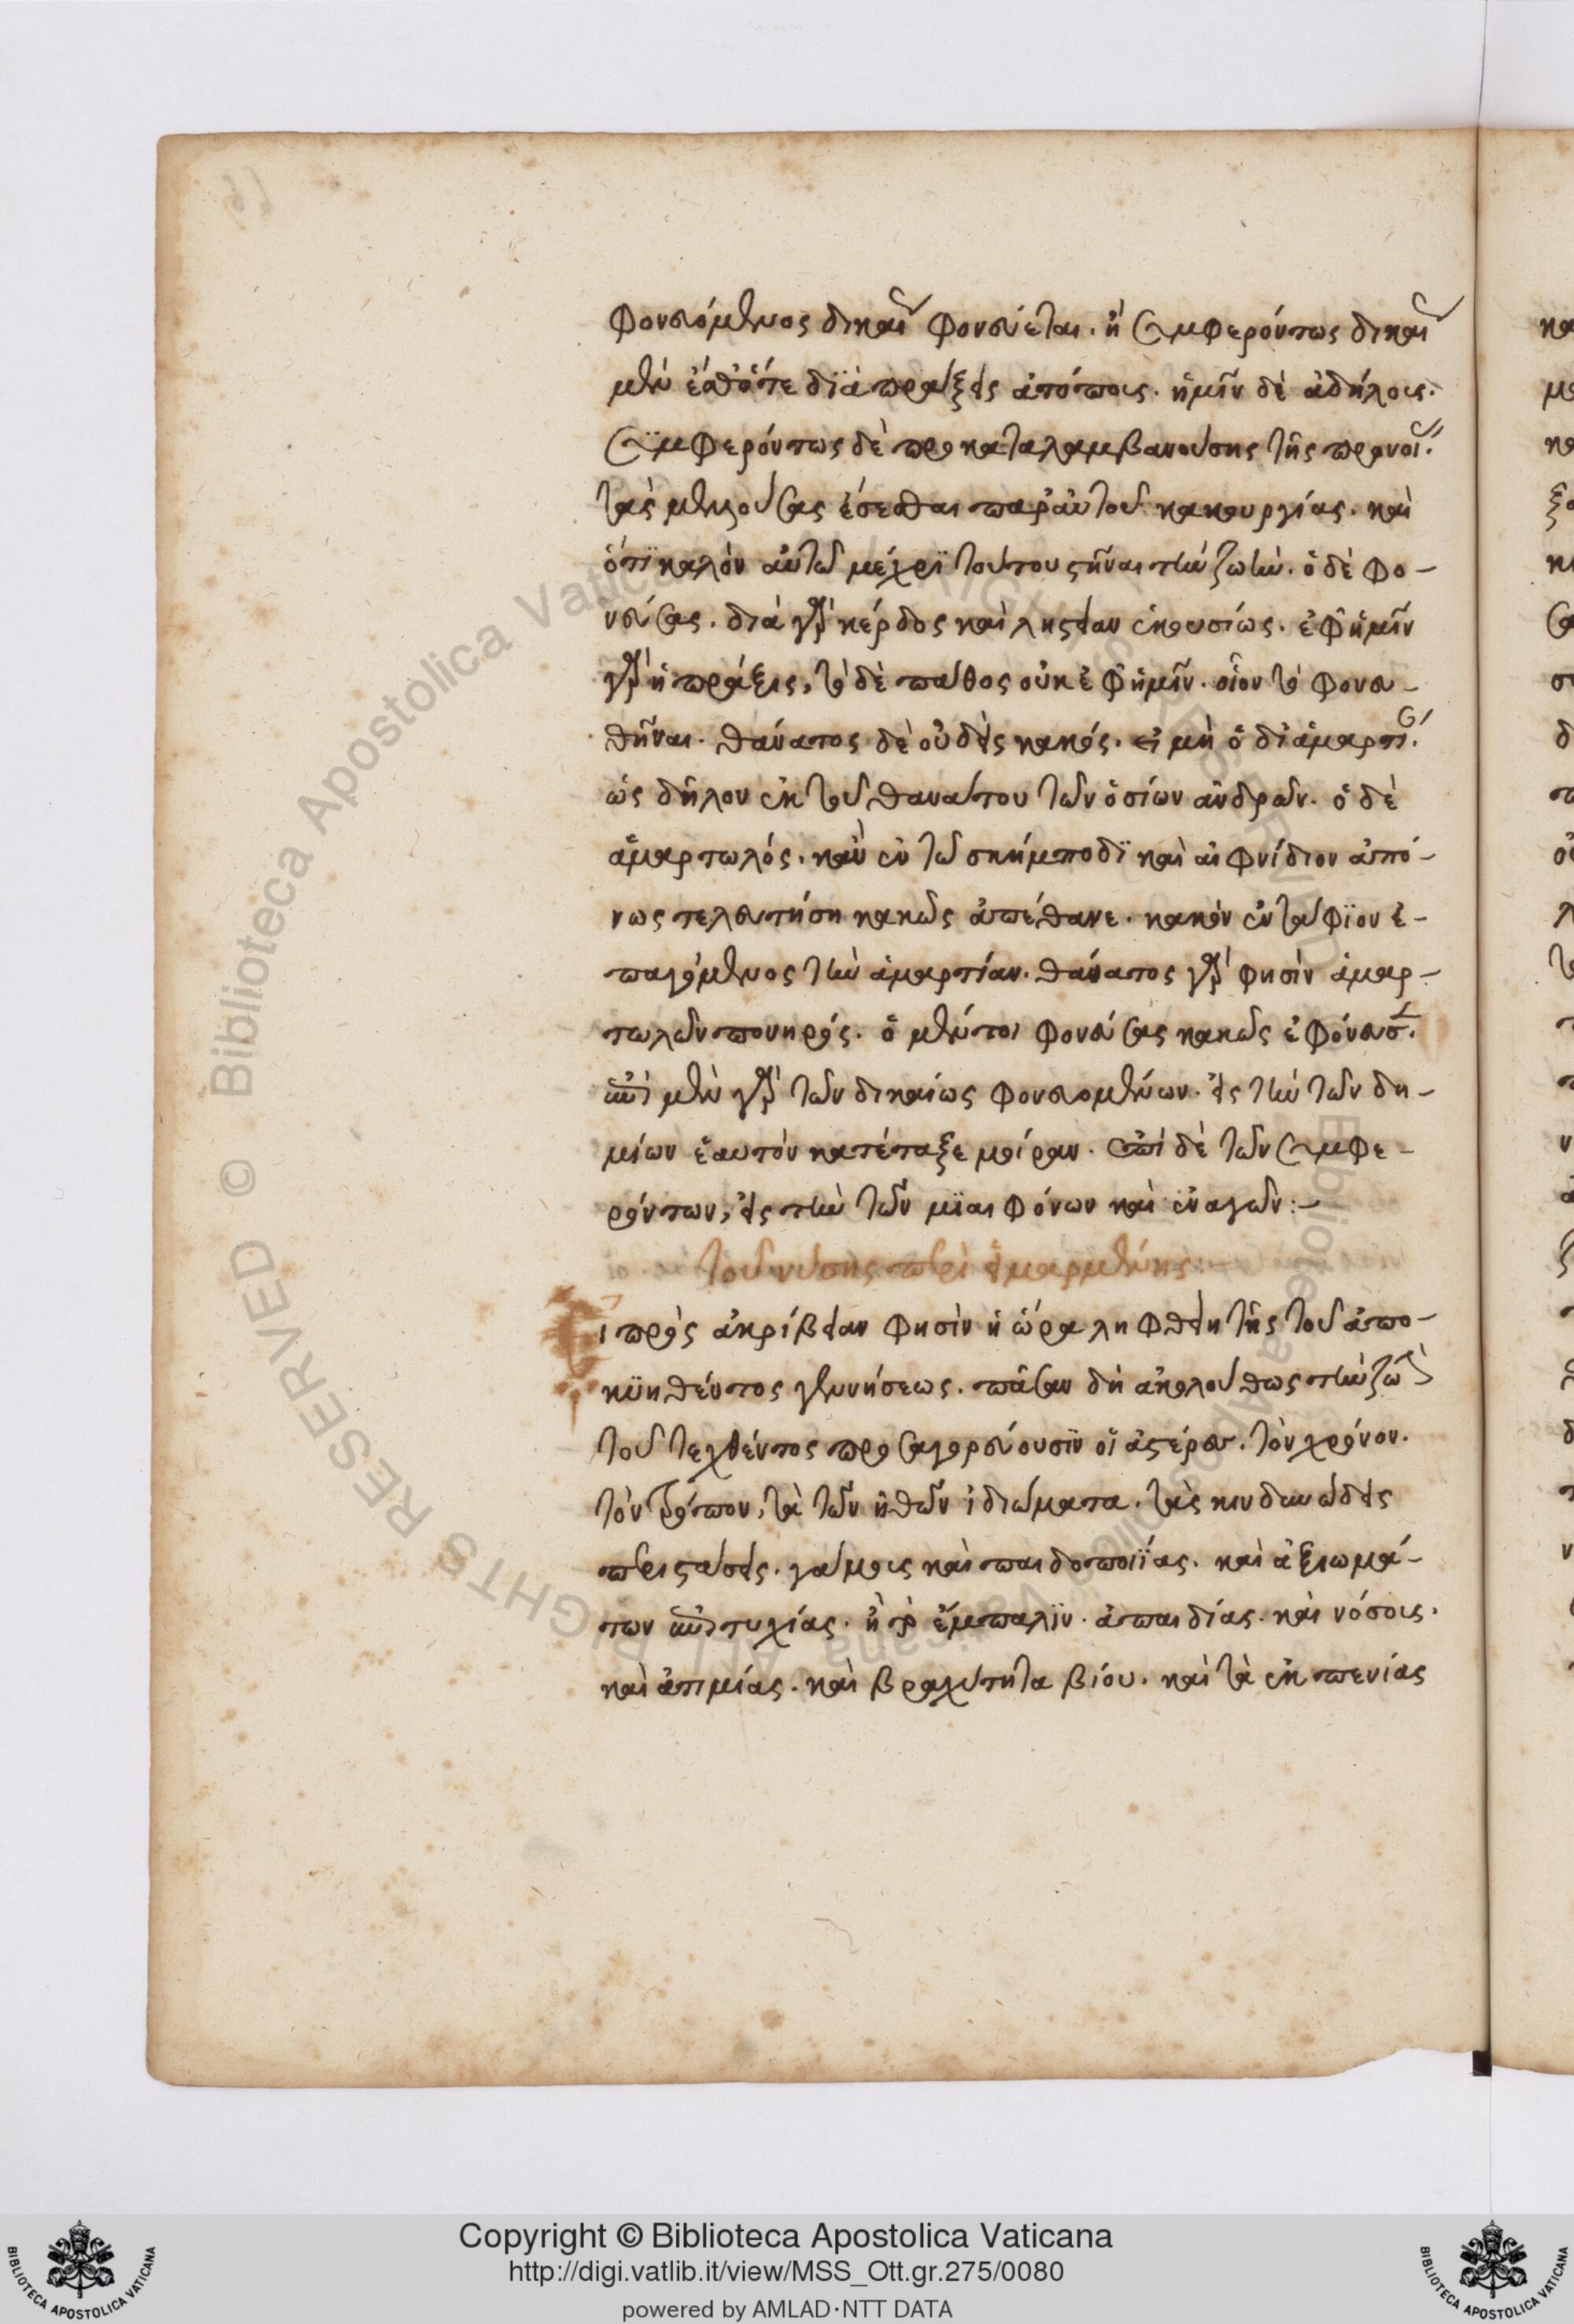 φονευόμενος δικαίως φονεύεται. ἢ συμφερόντως δικαίως
μὲν ἔσθ' ὅτε διὰ πράξεις ἀτόποις. ἡμῖν δὲ ἀδήλοις.
συμφερόντως δὲ προκαταλαμβανούσης τῆς προνοίας.
τὰς μελλούσας ἔσεσθαι παρ' αὐτοῦ κακουργίας. καὶ
ὅτι καλὸν αὐτῶ μέχρι τούτου στῆναι τὴν ζωήν. ὁ δὲ φο-
νεύσας. διὰ γὰρ κέρδος καὶ ληστείαν ἑκουσίως. ἐφ' ἡμῖν
γὰρ ἡ πρᾶξις, τὸ δὲ πάθος οὐκ ἐφ' ἡμῖν. οἷον τὸ φονευ-
θῆναι. θάνατος δὲ οὐδεὶς κακός. εἰ μὴ ὁ δι' ἁμαρτίαν.
ὡς δῆλον ἐκ τοῦ θανάτου τῶν ὁσίων ἀνδρῶν. ὁ δὲ
ἁμαρτωλός. κἂν ἐν τῶ σκίμποδι καὶ αἰφνίδιον ἀπό-
νως τελευτήση κακῶς ἀπέθανε. κακὸν ἐντάφιον ἐ-
παγόμενος τὴν ἁμαρτίαν. θάνατος γὰρ φησὶν ἁμαρ-
τωλῶν πονηρός. ὁ μέντοι φονεύσας κακῶς ἐφόνευσεν.
ἐπὶ μὲν γὰρ τῶν δικαίως φονευομένων. εἰς τὴν τῶν δη-
μίων ἑαυτὸν κατέταξε μοίραν. ἐπὶ δὲ τῶν συμφε-
ρόντων, εἰς τὴν τῶν μιαιφόνων καὶ ἐναγῶν:-
τοῦ νύσης περὶ εἱμαρμένης:-
ι πρὸς ἀκρίβειαν φησὶν ἡ ὥρα ληφθείη τῆς τοῦ ἀπο-
κυηθέντος γεννήσεως. πᾶσαν δὴ ἀκολούθως τὴν ζωὴν
τοῦ τεχθέντος προσαγορεύουσιν οἱ ἀστέρες. τὸν χρόνον.
τὸν τρόπον, τὰ τῶν ἠθῶν ἰδιώματα. τὰς κινδυνώδεις
περιστάσεις. γάμοις καὶ παιδοποιΐας. καὶ ἀξιωμά-
των ἐπιτυχίας. ἢ τὸ ἔμπαλιν. ἀπαιδίας. καὶ νόσοις.
καὶ ἀτιμίας. καὶ βραχύτητα βίου. καὶ τὰ ἐκ πενίας
Copyright © Biblioteca Apostolica Vaticana
http://digi.vatlib.it/view/MSS_Ott.gr.275/0080
powered by AMLAD·NTT DATA